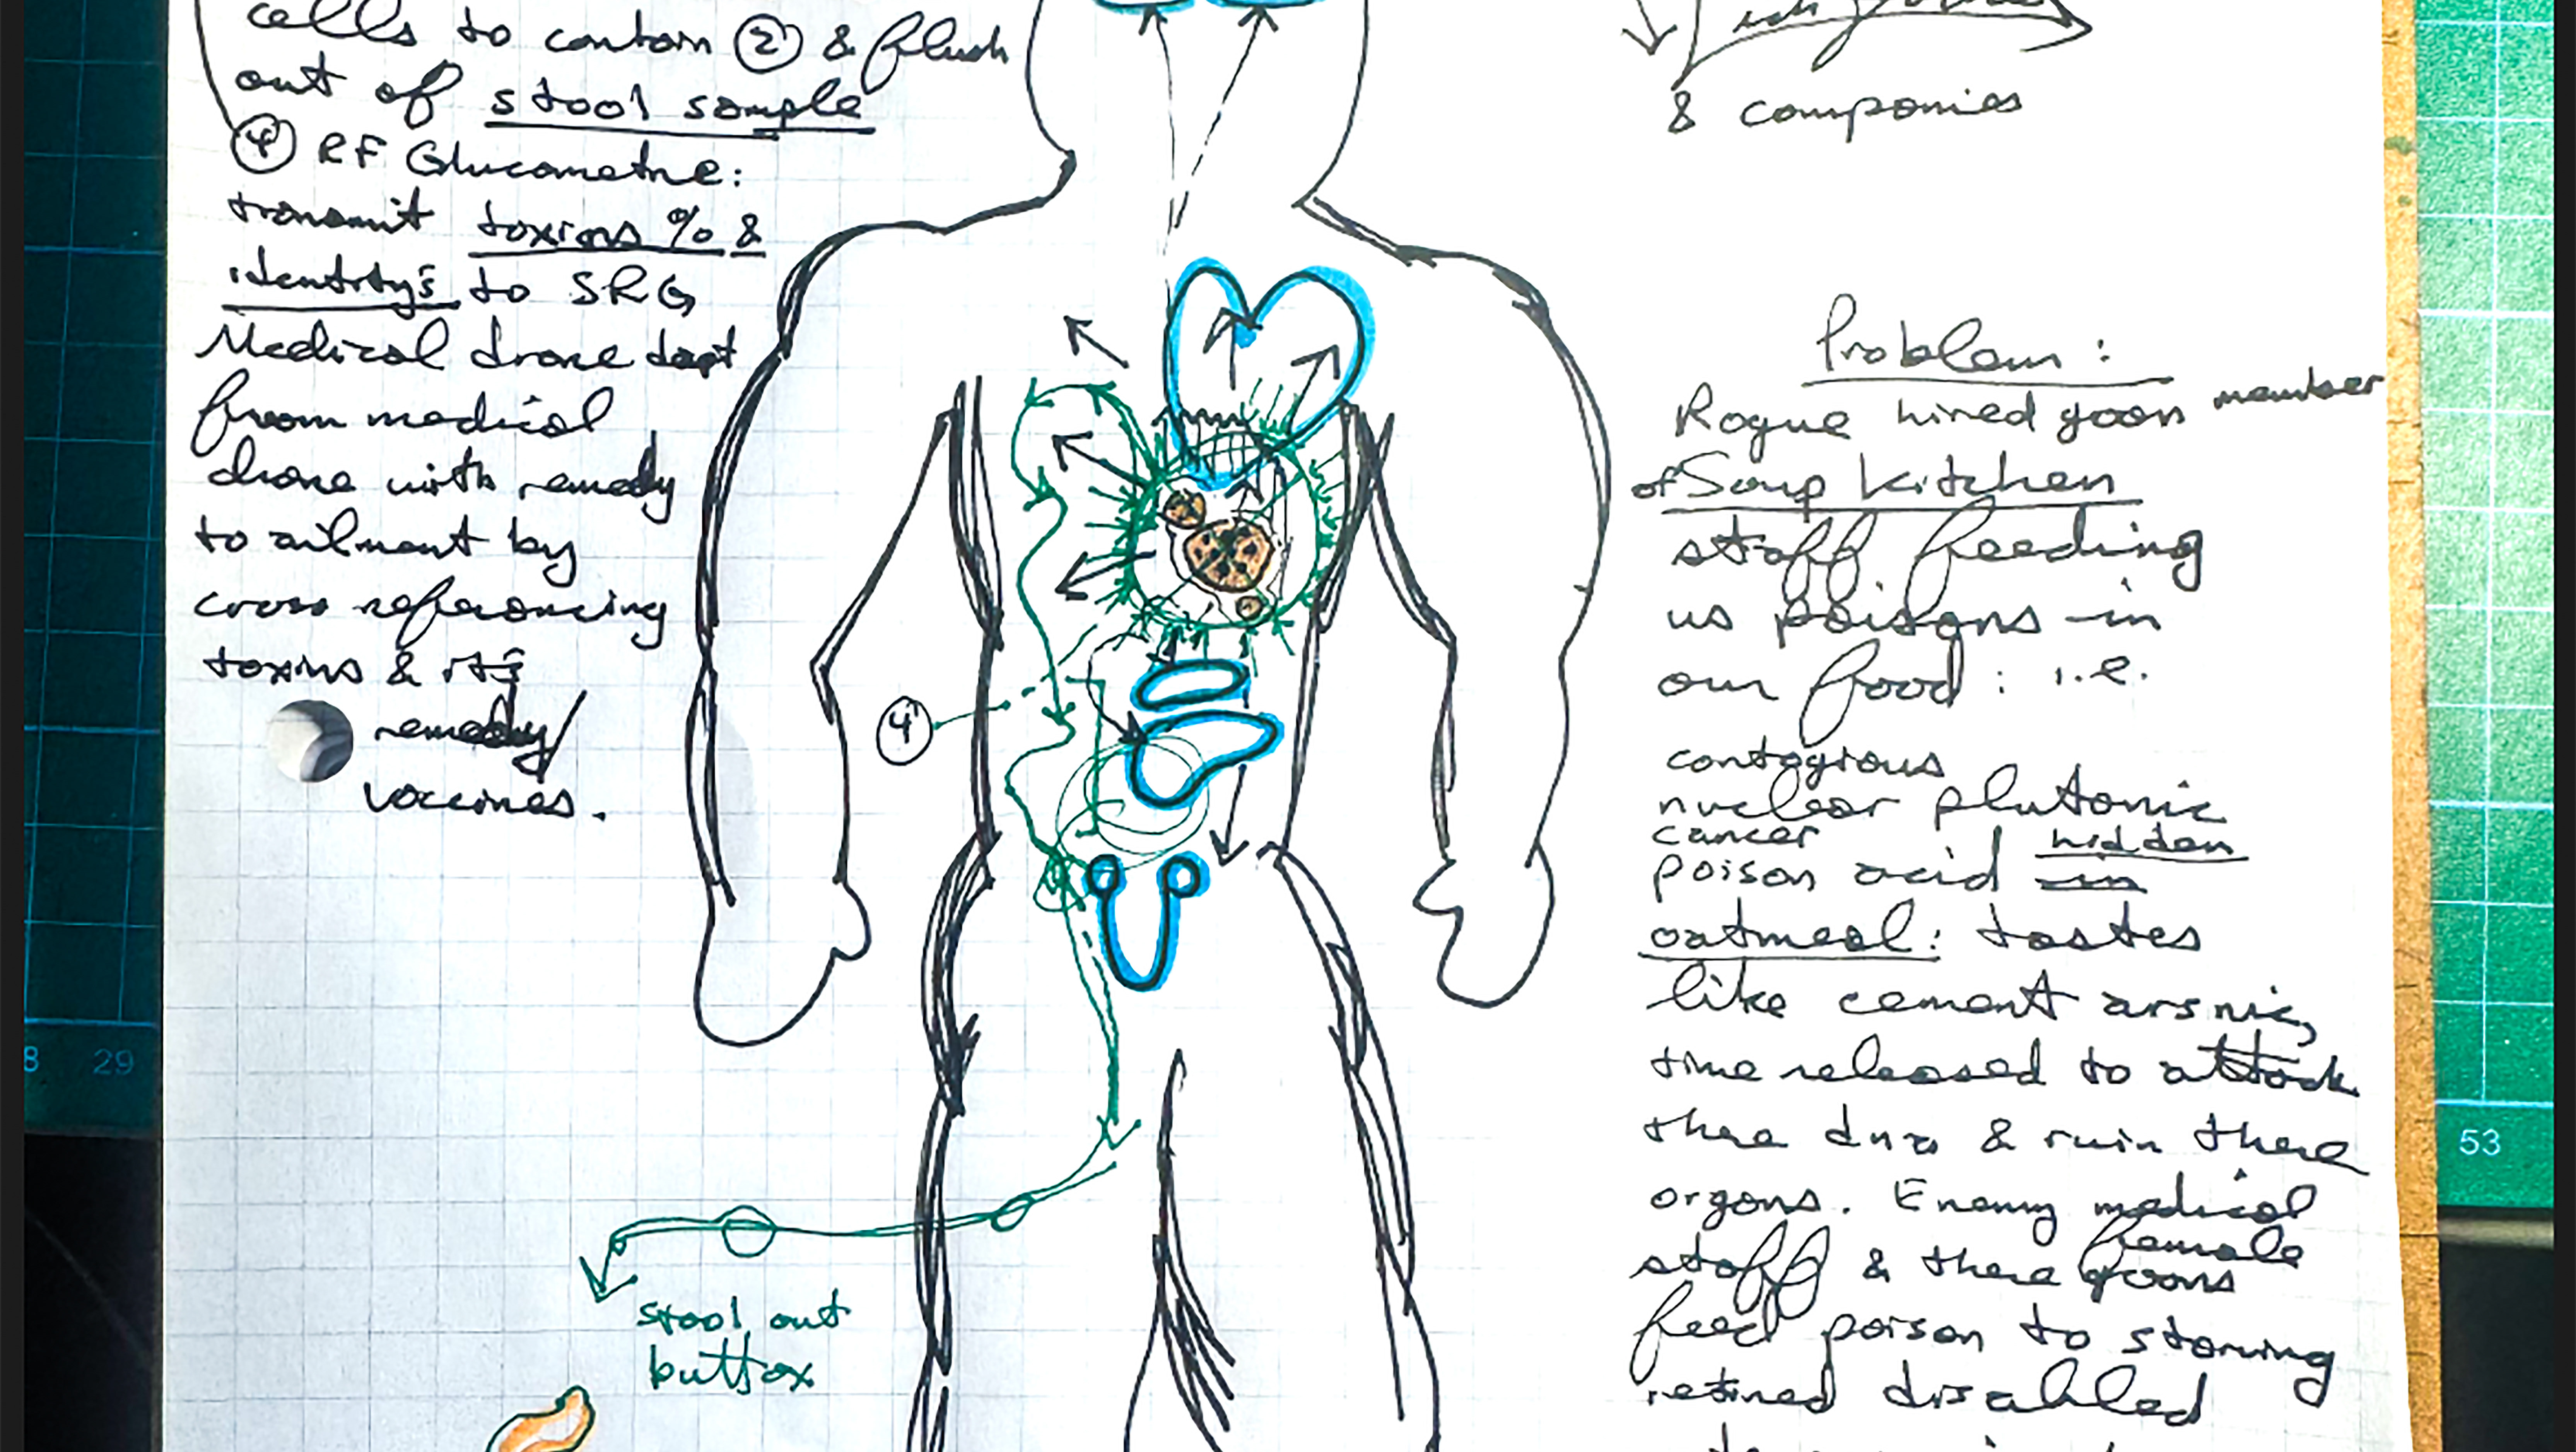 cells to contain ② & flush
out of stool sample
④ RF Glucometre:
transmit toxins % &
identity's to SRG
Medical drone dept
from medical
drone with remedy
to ailment by
cross referencing
toxins & it's
remedy/
vaccines.
④
stool out
buttox
& companies
Problem:
Rogue hired goon member
of Soup kitchen
staff feeding
us poisons in
our food: i.e.
contagious
nuclear plutonic
cancer
poison acid hidden
in
oatmeal: tastes
like cement arsnic,
time released to attack
there dna & ruin there
organs. Enemy medical
staff & there female
goons
feed poison to starving
retired disabled
8 29
53